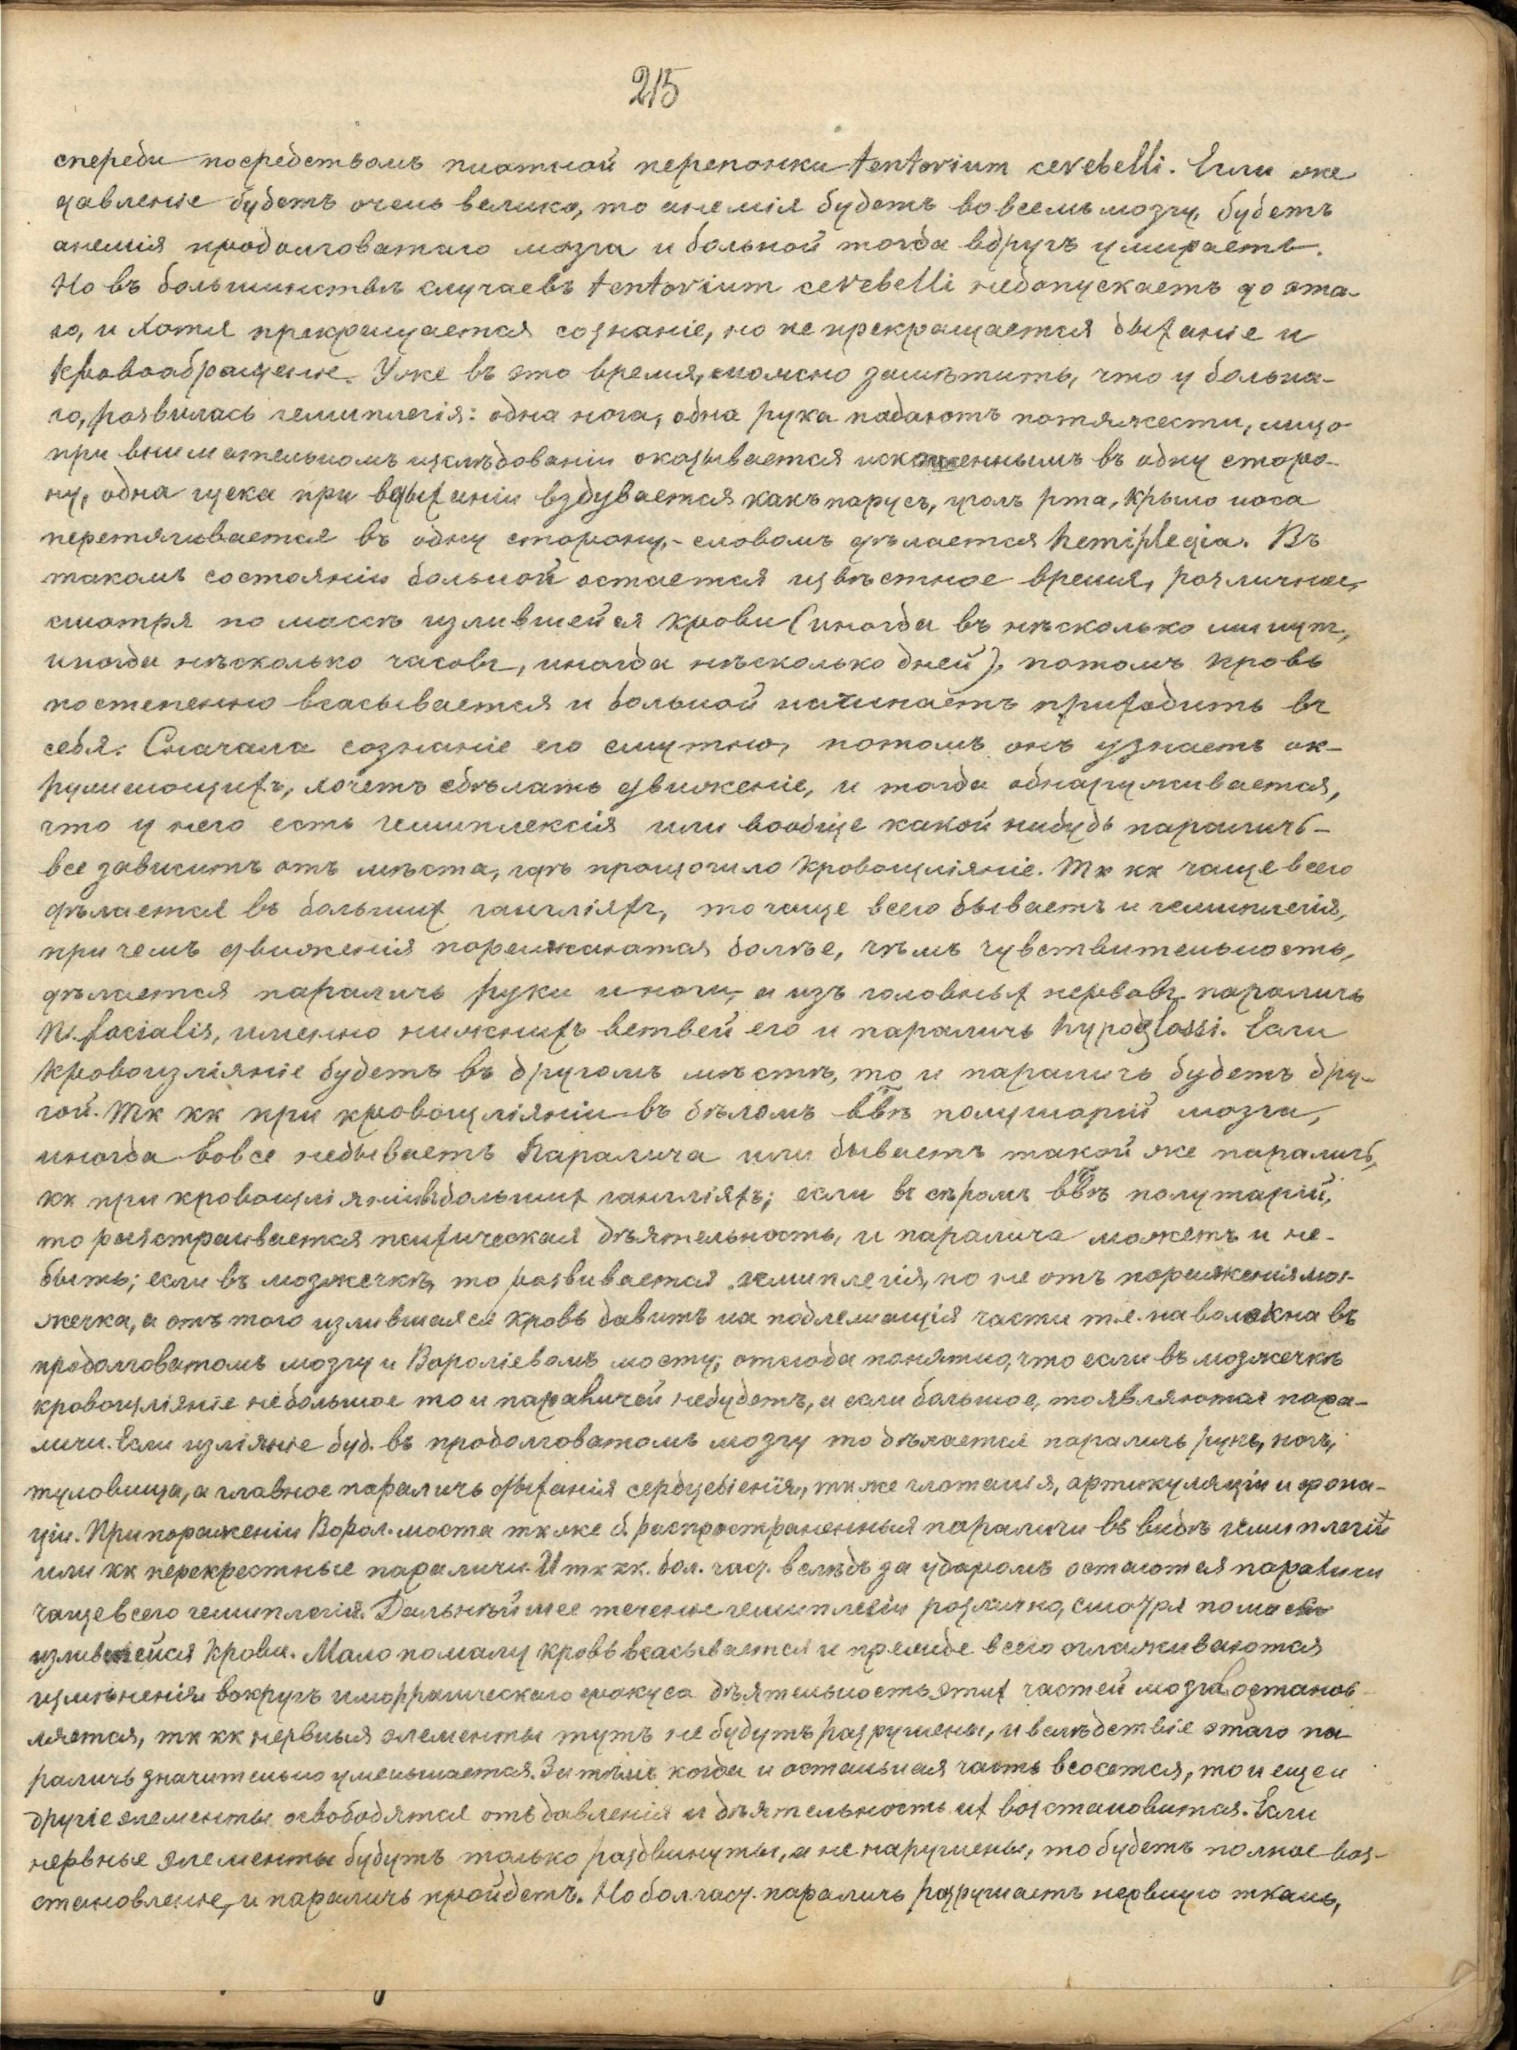 215
спереди посредствомъ плотной перепонки tentorium cerebelli. Если же
давленіе будетъ очень велико, то анемія будетъ во всемъ мозгу, будетъ
анемія продолговатаго мозга и больной тогда вдругъ умираетъ.
Но въ большинствѣ случаевъ tentorium cerebelli недопускаетъ до эта-
го, и хотя прекращается сознаніе, но не прекращается дыханіе и
кровообращеніе. Уже въ это время, можно замѣтить, что у больна-
го, развилась гемиплегія: одна нога, одна рука падаютъ потяжести, лицо
при внимательномъ изслѣдованіи оказывается искаженнымъ въ одну сторо-
ну, одна щека при вдыханіи вздувается какъ парусъ, уголъ рта, крыло носа
перетягивается въ одну сторону,- словомъ дѣлается hemiplegia. Въ
такомъ состояніи больной остается извѣстное время, различное,
смотря по массѣ излившейся крови (иногда въ нѣсколько минут,
иногда нѣсколько часовъ, иногда нѣсколько дней), потомъ кровь
постепенно всасывается и больной начинаетъ приходить въ
себя. Сначала сознаніе его смутно, потомъ онъ узнаетъ ок-
ружающихъ, хочетъ сдѣлать движеніе, и тогда обнаруживается,
что у него есть гемиплексія или вообще какой нибудь параличъ-
все зависитъ отъ мѣста, гдѣ произошло кровоизліяніе. Тк кк чаще всего
дѣлается въ больших гангліяхъ, то чаще всего бываетъ и гемиплегія,
при чемъ движенія поражаются болѣе, чѣмъ чувствительность,
дѣлается параличъ руки и ноги, а изъ головных нервовъ параличъ
N. facialis, именно нижнихъ ветвей его и параличъ hypoglossi. Если
кровоизліяніе будетъ въ другомъ мѣстѣ, то и параличъ будетъ дру-
гой. Тк кк при кровоизліяніи въ бѣломъ ввѣ полушарій мозга,
иногда вовсе небываетъ паралича или бываетъ такой же параличъ,
кк при кровоизліяніи въ больших гангліяхъ; если въ сѣромъ ввѣ полушарій,
то разстраивается психическая дѣятельность, и паралича можетъ и не-
быть; если въ мозжечкѣ, то развивается гемиплегія, но не отъ пораженія моз-
жечка, а отъ того излившаяся кровь давитъ на подлежащія части т.е. на волокна въ
продолговатомъ мозгу и Вароліевомъ мосту; отсюда понятно, что если въ мозжечкѣ
кровоизліяніе небольшое то и параличей небудетъ, а если большое, то являются пара-
личи. Если изліяніе буд. въ продолговатомъ мозгу то дѣлается параличъ рукъ, ногъ,
туловища, а главное параличъ дыханія сердцебіенія, тк же глотанія, артикуляціи и фона-
ціи. При пораженіи Варол. моста тк же б. распространенныя параличи въ видѣ гемиплегій
или кк перекрестные параличи. И тк кк. бол. част. вслѣдъ за ударомъ остаются параличи
чаще всего гемиплегія. Дальнѣйшее теченіе гемиплегіи различно, смотря по массѣ
излившейся крови. Мало помалу кровь всасывается и прежде всего оглаживаются
измѣненія вокругъ гморрагическаго фокуса дѣятельность этих частей мозга востанов-
ляется, тк кк нервныя элементы тутъ не будутъ разрушены, и вслѣдствіе этаго па
раличъ значительно уменьшается. Затѣмъ когда и остальная часть всосется, то и еще и
другіе элементы освободятся отъ давленія и дѣятельность их возстановится. Если
нервные элементы будутъ только раздвинуты, а не нарушены, то будетъ полное воз-
становленіе, и параличъ пройдетъ. Но бол част. параличъ разрушаетъ нервную ткань,